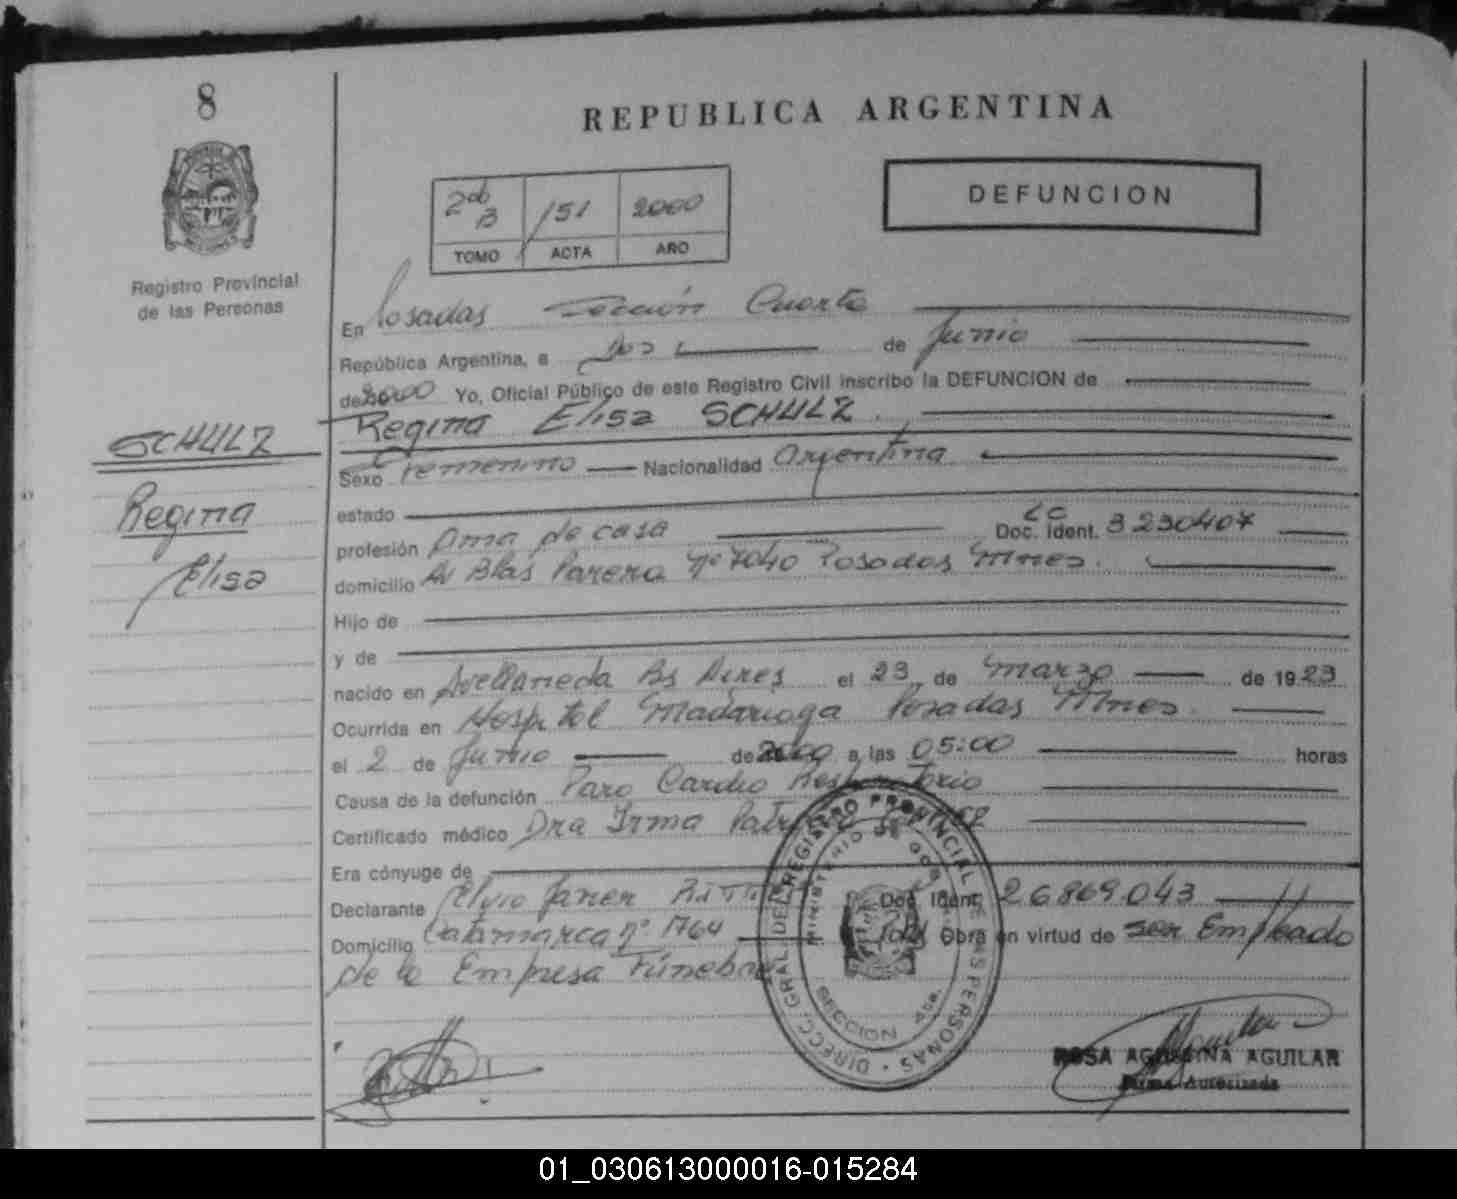 8
REPUBLICA ARGENTINA
DEFUNCION
2do B 151 2000
TOMO ACTA AÑO
Registro Provincial
de las Personas
En Posadas Sección Cuarta
República Argentina, a dos de Junio
de 2000 Yo, Oficial Público de este Registro Civil inscribo la DEFUNCION de
Regina Elisa SCHULZ.
SCHULZ
Regina
Elisa
Sexo Femenino Nacionalidad Argentina
estado
profesión Ama de casa LC Doc. Ident. 3230407
domicilio Av Blas Parera Nº 7040 Posadas Mnes.
Hijo de
y de
nacido en Avellaneda Bs Aires el 23 de Marzo de 1923
Ocurrida en Hospital Madariaga Posadas Mnes.
el 2 de Junio de 2000 a las 05:00 horas
Causa de la defunción Paro Cardio Respiratorio
Certificado médico Dra Irma
Era cónyuge de
Declarante Elvio Javier Doc. Ident. 26.869.043
Domicilio Catamarca nº 1764 Obra en virtud de ser Empleado
de la Empresa Fúnebre
DIRECC. GRAL. DEL REGISTRO PROVINCIAL DE LAS PERSONAS
MINISTERIO DE GOBIERNO
SECCION 4ta.
ROSA AGUSTINA AGUILAR
Firma Autorizada
01_030613000016-015284